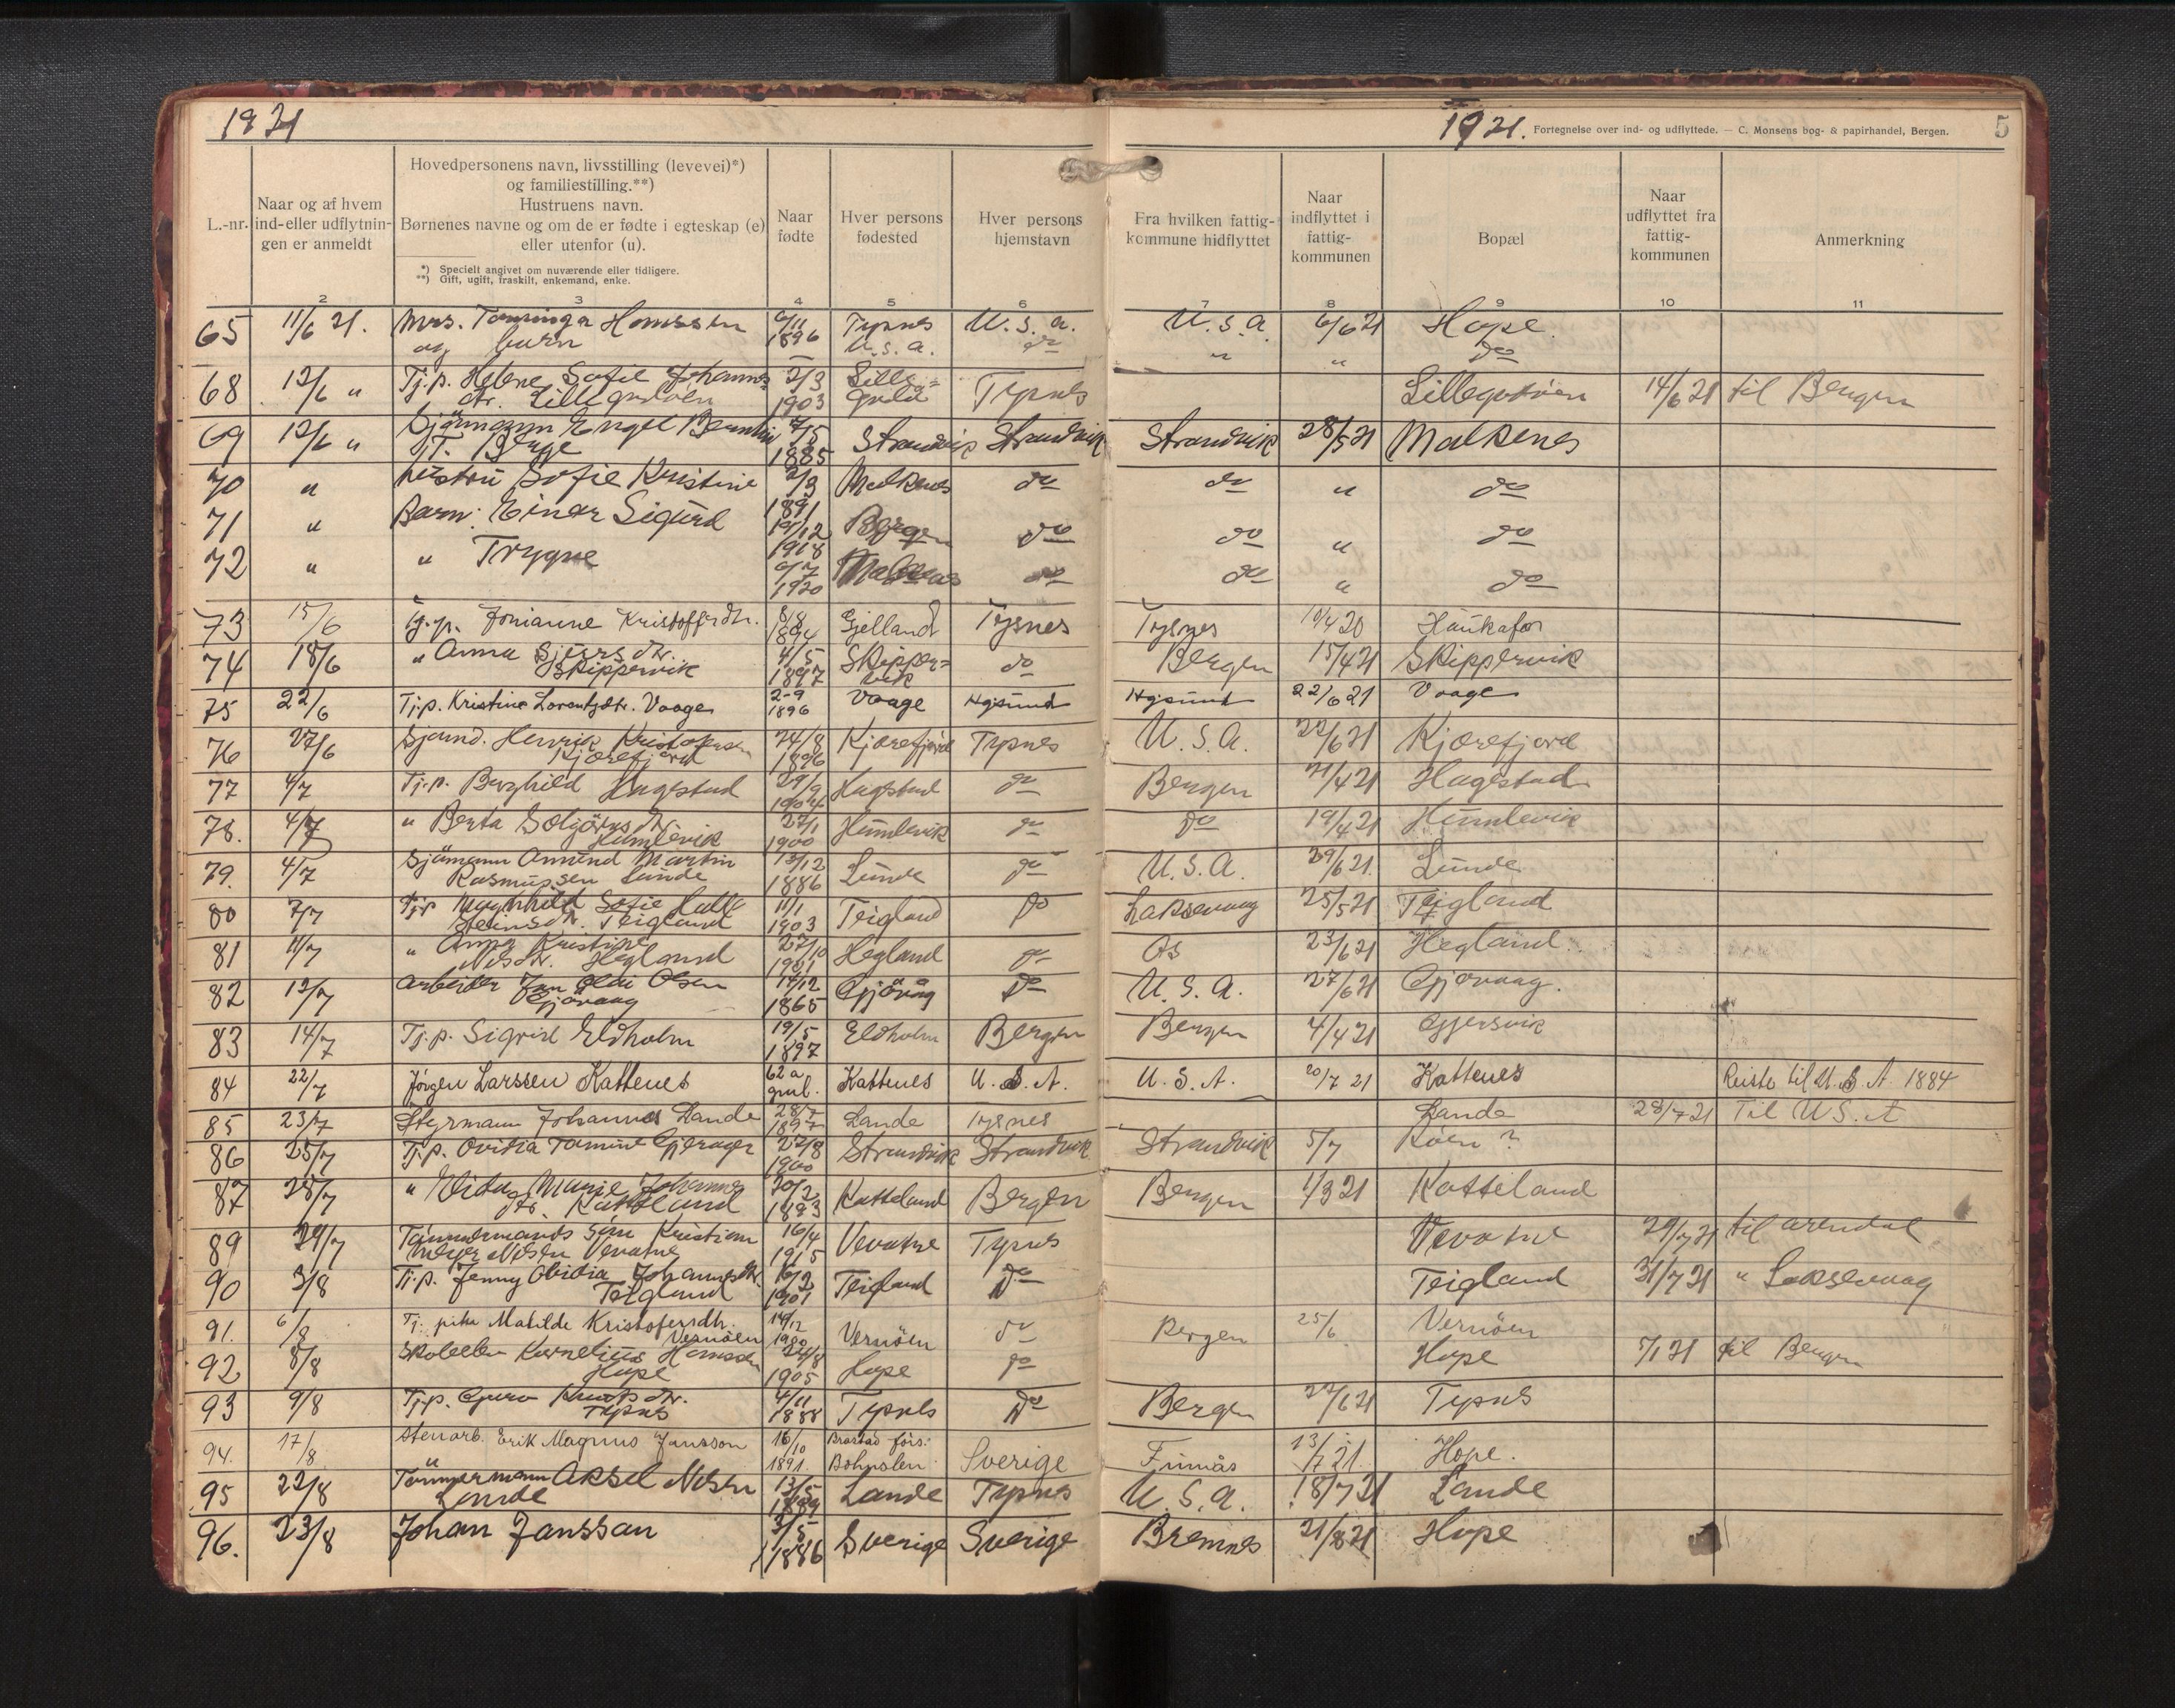 1921
1921. Fortegnelse over ind- og udflyttede. — C. Monsens bog- & papirhandel, Bergen. 5
L.-nr.
Naar og af hvem ind- eller udflytnin- gen er anmeldt
Hovedpersonens navn, livsstilling (levevei)*)
og familiestilling.**)
Hustruens navn.
Børnenes navne og om de er fødte i egteskap (e)
eller utenfor (u).
*) Specielt angivet om nuværende eller tidligere.
**) Gift, ugift, fraskilt, enkemand, enke.
Naar fødte
Hver persons fødested
Hver persons hjemstavn
Fra hvilken fattig- kommune hidflyttet
Naar indflyttet i fattig- kommunen
Bopæl
Naar udflyttet fra fattig- kommunen
Anmerkning
2 3 4 5 6 7 8 9 10 11
65 11/6 21. Mrs. Homssen 6/11 1896 Tysnes U.S.A. U.S.A 6/6 21 Hope
og barn U.S.A. do " " do
68 12/6 " Tj.p. Helene Sofie Johannes= 2/3 Lille=
dtr. 1903 Tysnes 14/6 21 til Bergen
69 12/6 " Sjömann Engel 7/5 Strandvik Strandvik Strandvik 28/5 21 Malkenes
T. Berge 1885
70 " hustru Sofie Kristine 2/3 1891 Malkenes do do " do
71 " Barn: Einar Sigurd 19/12 1918 Bergen do do " do
72 " " Trygve 6/7 1920 Malkenes do do " do
73 15/6 Tj.p. Jonianne Kristoffersdtr. 8/8 1894 Gjelland Tysnes Tysnes 10/4 20 Haukafor
74 18/6 " Anna Sjursdtr. 4/5 Skipper= do Bergen 15/4 21 Skippervik
Skippervik 1897 vik
75 22/6 Tj.p. Kristine Lorentzdtr. Vaage 2-9 1896 Vaage Hgsund Hgsund 22/6 21 Vaage
76 27/6 Sjömd. Henrik Kristofersen 24/8 Kjærefjord Tysnes U.S.A. 22/6 21 Kjærefjord
Kjærefjord 1896
77 4/7 Tj.p. Borghild Hagestad 29/9 1904 Hagestad do Bergen 21/4 21 Hagestad
78. 4/7 " Berta 27/1 Humlevik do do 19/4 21 Humlevik
Humlevik 1900
79. 4/7 Sjömann Amund Martin 13/12 Lunde do U.S.A. 29/6 21. Lunde
Rasmussen Lunde 1886
80 7/7 Tjp Magnhild Sofie 11/1 Teigland do Laksevaag 25/5 21 Teigland
Steinsdtr. Teigland 1903
81 11/7 " Anna Kristine 27/10 Hegland do Os 23/6 21 Hegland
Nilsdtr. Hegland 1901
82 12/7 Arbeider Olsen 14/12 Gjövåg do U.S.A. 27/6 21 Gjøvaag.
Gjövaag 1865
83 14/7 Tj.p. Sigrid Eldholm 19/5 1897 Eldholm Bergen Bergen 4/4 21 Gjersvik
84 22/7 Jörgen Larssen Kattenes 62 a gml. Kattenes U.S.A. U.S.A. 20/7 21 Kattenes Reiste til U.S.A. 1884
85 23/7 Styrmann Johannes Lande 28/7 1897 Lande Tysnes Lande 28/7 21 Til U.S.A
86 25/7 Tj.p. Ovidia Tomine 22/8 1900 Strandvik Strandvik Strandvik 5/7 Röen?
87 28/7 " Marie Johannes 20/2 Katteland Bergen Bergen 1/3 21 Katteland
dtr. Katteland 1893
89 29/7 Tömmermands sön Kristian 16/4 Vevatne Tysnes Vevatne 29/7 21 til Arendal
Meyer Nilsen Vevatne 1915
90 3/8 Tj.p. Jenny Ovidia Johannesdtr. 16/2 Teigland do Teigland 31/7 21 " Laksevaag
Teigland 1901
91. 6/8 Tj. pike Matilde Kristofersdtr. 14/12 Vernöen do Bergen 25/6 Vernöen
Vernöen 1900
92 8/8 Skoleelev Kornelius Homssen 24/8 Hope do Hope 7/1 21 til Bergen
Hope 1905
93 9/8 Tj.p. Guro Knutsdtr. 4/11 Tysnes do Bergen 22/6 21 Tysnes
Tysnes 1888
94. 17/8 Stenarb. Erik Magnus Jansson 16/10 1891. Brastad förs: Bohuslen Sverige Finnås 13/7 21. Hope.
95 22/8 Tömmermann Aksel Nilsen 13/5 Lande Tysnes U.S.A. 18/7 21 Lande
Lande 1889
96. 23/8 Johan Janssan 3/5 1886 Sverige Sverige Bremnes 21/8 21 Hope